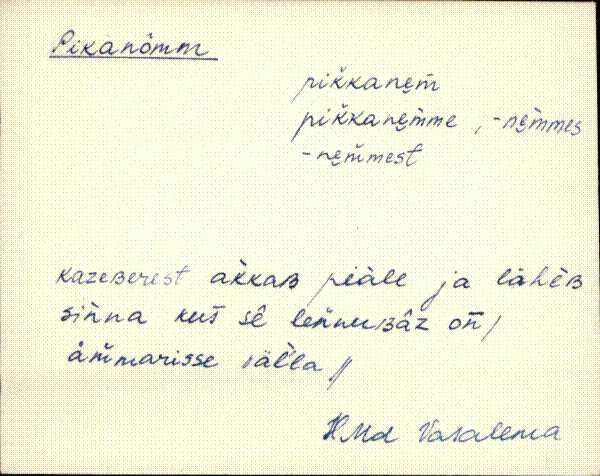 Pikanõmm
pik̆kanem̆
pik̆kanem̆me, -nem̆mes
-nem̆mest
kazeʙerest ak̆kaʙ piäle ja lähèʙ
siǹna kus̆ sê̬ leǹnuʙâz on̆,
äm̆marisse väl̆la //
HMd Vasalemma